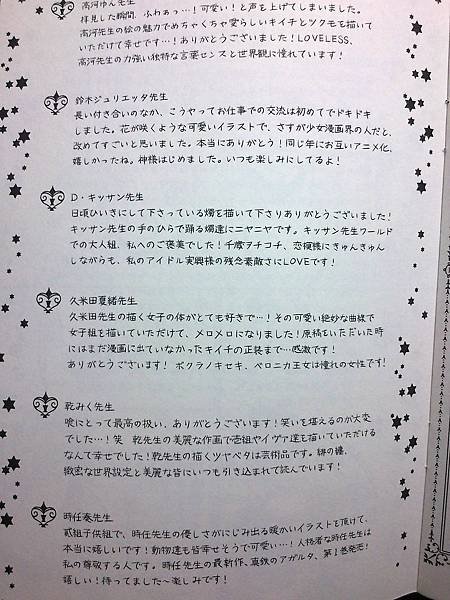 高河ゆん先生
拝見した瞬間、ふわぁっ…!可愛い!と声を上げてしまいました。
高河先生の絵の魅力でめちゃくちゃ愛らしいキイチとツクモを描いて
いただけて幸せです…!ありがとうございました!LOVELESS、
高河先生の力強い独特な言葉センスと世界観に憧れています!
鈴木ジュリエッタ先生
長い付き合いのなか、こうやってお仕事での交流は初めてでドキドキ
しました。花が咲くような可愛いイラストで、さすが少女漫画界の人だと、
改めてすごいと思いました。本当にありがとう!同じ年にお互いアニメ化、
嬉しかったね。神様はじめました。いつも楽しみにしてるよ!
D・キッサン先生
日頃ひいきにして下さっている燭を描いて下さりありがとうございました!
キッサン先生の手のひらで踊る燭達にニヤニヤです。キッサン先生ワールド
での大人組、私へのご褒美でした!千歳ヲチコチ、恋模様にきゅんきゅん
しながらも、私のアイドル実興様の残念素敵さにLOVEです!
久米田夏緒先生
久米田先生の描く女子の体がとても好きで…!その可愛い絶妙な曲線で
女子組を描いていただけて、メロメロになりました!原稿をいただいた時
にはまだ漫画に出ていなかったキイチの正装まで…感激です!
ありがとうございます! ボクラノキセキ、ベロニカ王女は憧れの女性です!
乾みく先生
喰にとって最高の扱い、ありがとうございます!笑いを堪えるのが大変
でした…!笑 乾先生の美麗な作画で壱組やイヴァ達を描いていただける
なんて幸せでした!乾先生の描くツヤベタは芸術品です。緋の纏、
緻密な世界設定と美麗な皆にいつも引き込まれて読んでいます!
時任奏先生
貳組子供組で、時任先生の優しさがにじみ出る暖かいイラストを頂けて、
本当に嬉しいです!動物達も皆幸せそうで可愛い…!人格者な時任先生は
私の尊敬する人です。時任先生の最新作、真鉄のアガルタ、第1巻発売!
嬉しい!待ってました～楽しみです!